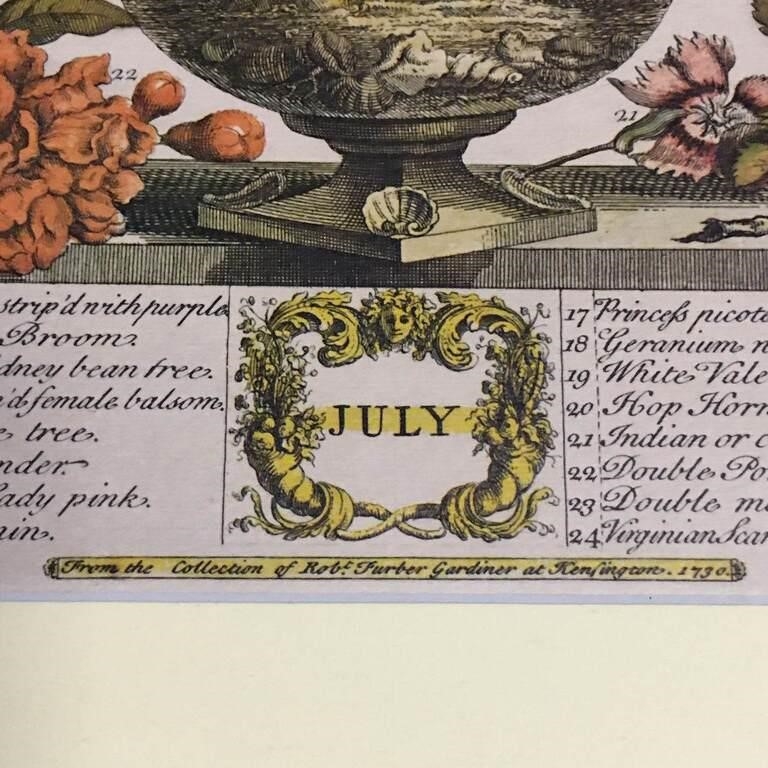 22
21
strip'd with purple
Broom.
dney bean tree.
'd female balsom.
e tree.
nder.
ady pink.
in.
JULY
17 Princess picote
18 Geranium n
19 White Vale
20 Hop Horn
21 Indian or c
22 Double Po
23 Double m
24 Virginian Scar
From the Collection of Rob.t Furber Gardiner at Kensington. 1730.